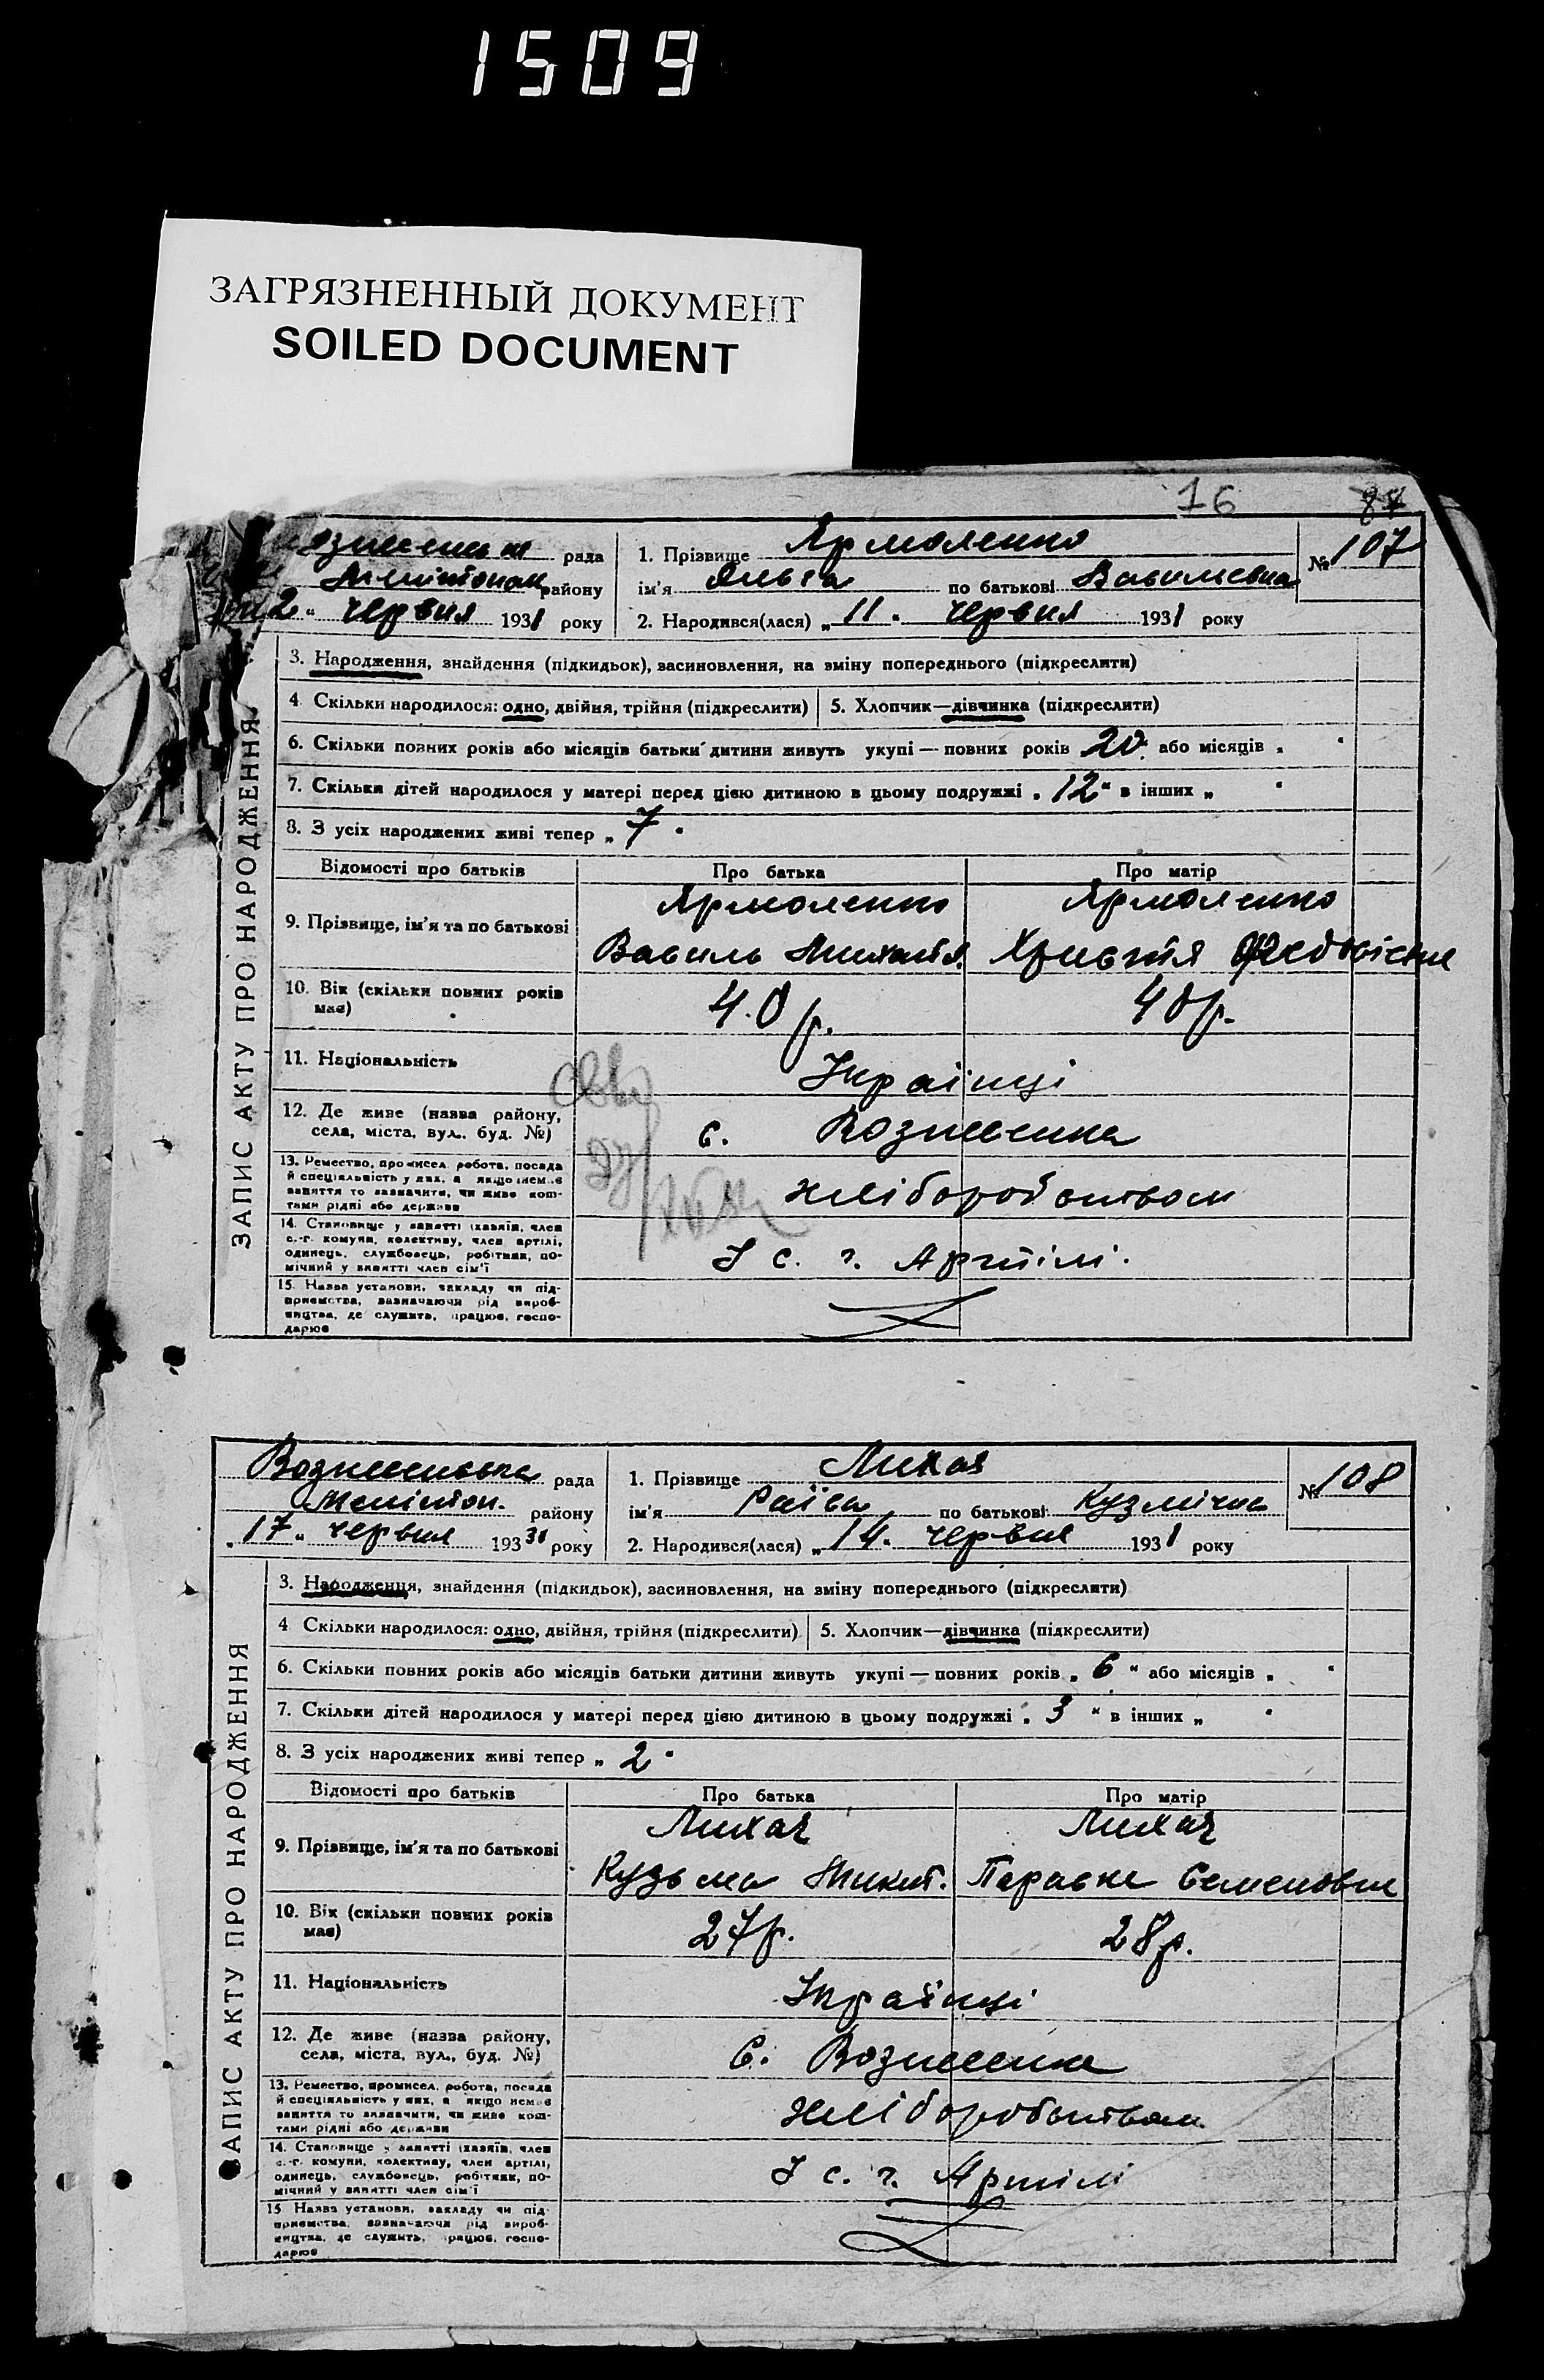 1509
ЗАГРЯЗНЕННЫЙ ДОКУМЕНТ
SOILED DOCUMENT
16 87
рада 1. Прізвище Ярмоленко № 107
Мелітопол району ім'я Ольга по батькові Васильевна
червня 1931 року 2. Народився(лася) „11" червня 1931 року
ЗАПИС АКТУ ПРО НАРОДЖЕННЯ
3. Народження, знайдення (підкидьок), засиновлення, на зміну попереднього (підкреслити)
4 Скільки народилося: одно, двійня, трійня (підкреслити) 5. Хлопчик—дівчинка (підкреслити)
6. Скільки повних років або місяців батьки дитини живуть укупі — повних років 20 або місяців „ "
7. Скільки дітей народилося у матері перед цією дитиною в цьому подружжі „12" в інших „ "
8. З усіх народжених живі тепер „7"
Відомості про батьків Про батька Про матір
9. Прізвище, ім'я та по батькові Ярмоленко Ярмоленко
Василь Михайл. Христя
10. Вік (скільки повних років має) 40 р. 40 р.
11. Національність Українці
12. Де живе (назва району, села, міста, вул., буд. №) с. Вознесенка
13. Ремество, промисел, робота, посада й спеціяльність у них, а якщо немає заняття то зазначити, чи живе коштами рідні або держави хліборобством
14. Становище у занятті (хазяїн, член с.-г. комуни, колективу, член артілі, одинець, службовець, робітник, помічний у занятті член сім'ї У с. г. Артілі.
15. Назва установи, закладу чи підприємства, зазначаючи рід виробництва, де служить, працює, господарює
Вознесенська рада 1. Прізвище Лихач № 108
Мелітоп. району ім'я Раїса по батькові Кузмічна
„17" червня 19331 року 2. Народився(лася) „14" червня 1931 року
ЗАПИС АКТУ ПРО НАРОДЖЕННЯ
3. Народження, знайдення (підкидьок), засиновлення, на зміну попереднього (підкреслити)
4 Скільки народилося: одно, двійня, трійня (підкреслити) 5. Хлопчик—дівчинка (підкреслити)
6. Скільки повних років або місяців батьки дитини живуть укупі — повних років „6" або місяців „ "
7. Скільки дітей народилося у матері перед цією дитиною в цьому подружжі „3" в інших „ "
8. З усіх народжених живі тепер „2"
Відомості про батьків Про батька Про матір
9. Прізвище, ім'я та по батькові Лихач Лихач
Кузьма Микит. Параска Семеновна
10. Вік (скільки повних років має) 27 р. 28 р.
11. Національність Українці
12. Де живе (назва району, села, міста, вул., буд. №) с. Вознесенка
13. Ремество, промисел, робота, посада й спеціяльність у них, а якщо немає заняття то зазначити, чи живе коштами рідні або держави хліборобством
14. Становище у занятті (хазяїн, член с.-г. комуни, колективу, член артілі, одинець, службовець, робітник, помічний у занятті член сім'ї У с. г. Артілі
15 Назва установи, закладу чи підприємства, зазначаючи рід виробництва, де служить, працює, господарює